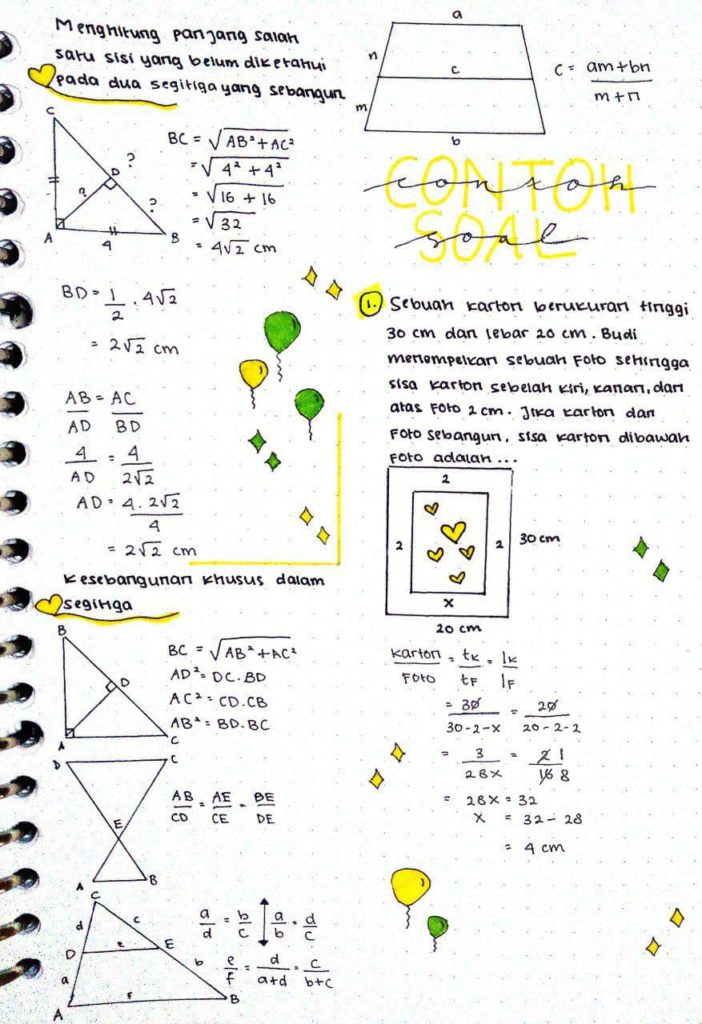 Menghitung panjang salah
satu sisi yang belum diketahui
pada dua segitiga yang sebangun
C
D
?
?
a
A
4
B
BC = √AB²+AC²
= √4² + 4²
= √16 + 16
= √32
= 4√2 cm
BD = 1/2 . 4√2
= 2√2 cm
AB/AD = AC/BD
4/AD = 4/2√2
AD = 4.2√2/4
= 2√2 cm
Kesebangunan khusus dalam
segitiga
B
D
A
C
BC = √AB²+AC²
AD² = DC.BD
AC² = CD.CB
AB² = BD.BC
D
C
E
A
B
AB/CD = AE/CE = BE/DE
C
d
c
D
e
E
a
b
f
A
B
a/d = b/c
a/b = d/c
e/f = d/a+d = c/b+c
a
n
c
m
b
c = am+bn/m+n
CONTOH
contoh
SOAL
soal
1. Sebuah karton berukuran tinggi
30 cm dan lebar 20 cm. Budi
menempelkan sebuah foto sehingga
sisa karton sebelah kiri, kanan, dan
atas foto 2 cm. Jika karton dan
foto sebangun, sisa karton dibawah
foto adalah ...
2
2
2
30 cm
x
20 cm
karton/Foto = tK/tF = lK/lF
= 30/30-2-x = 20/20-2-2
= 3/28x = 2 1/16 8
= 28x = 32
x = 32 - 28
= 4 cm